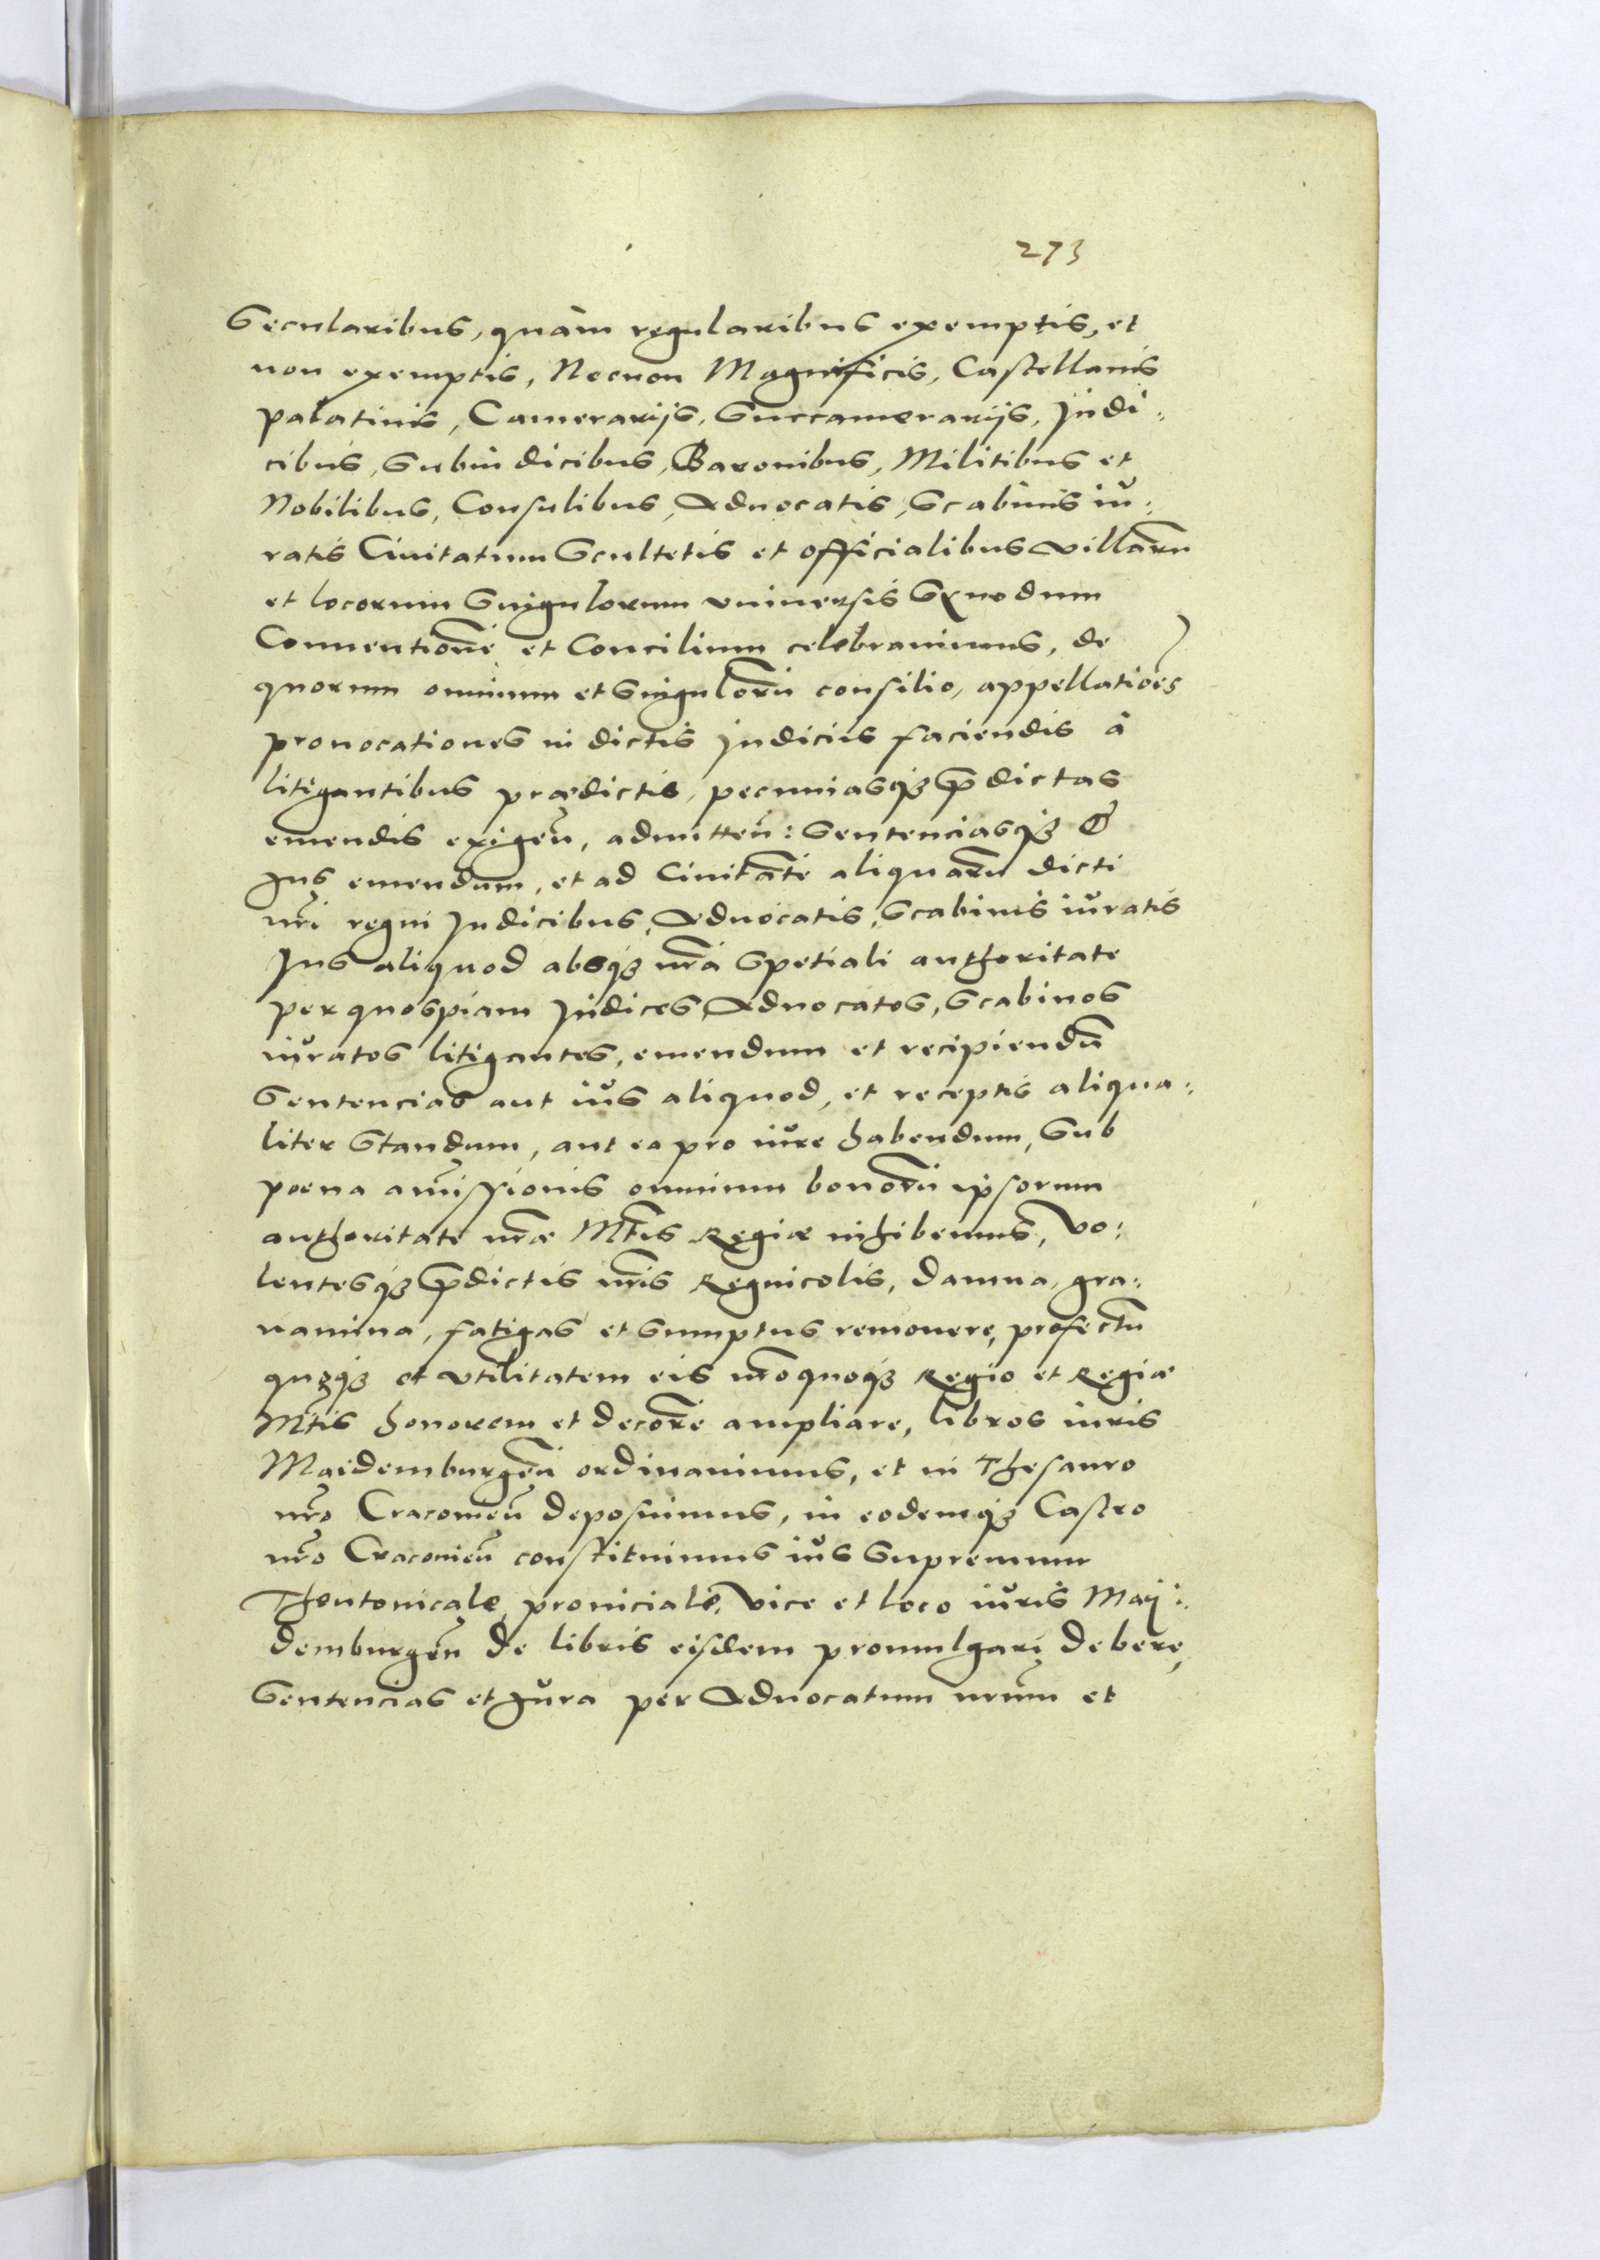 273
Secularibus, quàm regularibus exemptis, et
non exemptis, Necnon Magnificis, Castellanis
palatinis, Camerarijs, Succamerarijs, Iudi:
cibus, Subiudicibus, Baronibus, Militibus et
Nobilibus, Consulibus, Aduocatis, Scabinis iu:
ratis Ciuitatum Scultetis et officialibus villarū
et locorum Singulorum vniuersis Synodum
Conuentionē et Concilium celebrauimus, de
quorum omnium et Singulorū consilio, appellatioēs
prouocationes in dictis Iudiciis faciendis à
litigantibus prædictis, pecuniasq̃ p̃dictas
emendis exigeñ, admitteñ: Sentenciasq̃ &
Ius emendum, et ad Ciuitatē aliquarū dicti
nr̃i regni Iudicibus, Aduocatis, Scabinis iuratis
Ius aliquod absq̃ nr̃a Spetiali authoritate
per quospiam Iudices Aduocatos, Scabinos
iuratos litigantes, emendum et recipiendū
Sentencias aut ius aliquod, et receptis aliqua:
liter Standum, aut ea pro iure habendum, Sub
poena amissionis omnium bonorū ipsorum
authoritate nr̃æ Mt̃is Regiæ inhibemus, Vo:
lentesq̃ p̃dictis nr̃is Regnicolis, damna, gra:
uamina, fatigas et Sumptus remouere, profectū
quoq̃ et vtilitatem eis nr̃o quoq̃ Regio et Regiæ
Mt̃is honorem et decorē ampliare, libros iuris
Maidemburgeñ ordinauimus, et in Thesauro
nr̃o Cracouieñ deposuimus, in eodemq̃ Castro
nr̃o Cracouieñ constituimus ius Supremum
Theutonicale, prouiciale, Vice et loco iuris Maij:
demburgeñ de libris eisdem promulgari debere,
Sentencias et Iura per Aduocatum nr̃um et